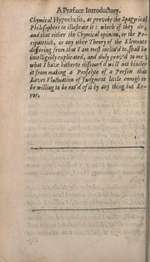 A Præface Introductory.
Chymical Hypothesis, or provoke the Spagyrical
Philosophers to illustrate it: which if they do,
and that either the Chymical opinion, or the Pe-
ripatetick, or any other Theory of the Elements
differing from that I am most inclin'd to, shall be
intelligibly explicated, and duly prov'd to me;
what I have hitherto discours'd will not hinder
it from making a Proselyte of a Person that
Loves Fluctuation of Judgment little enough to
be willing to be eas'd of it by any thing but Er-
rour.